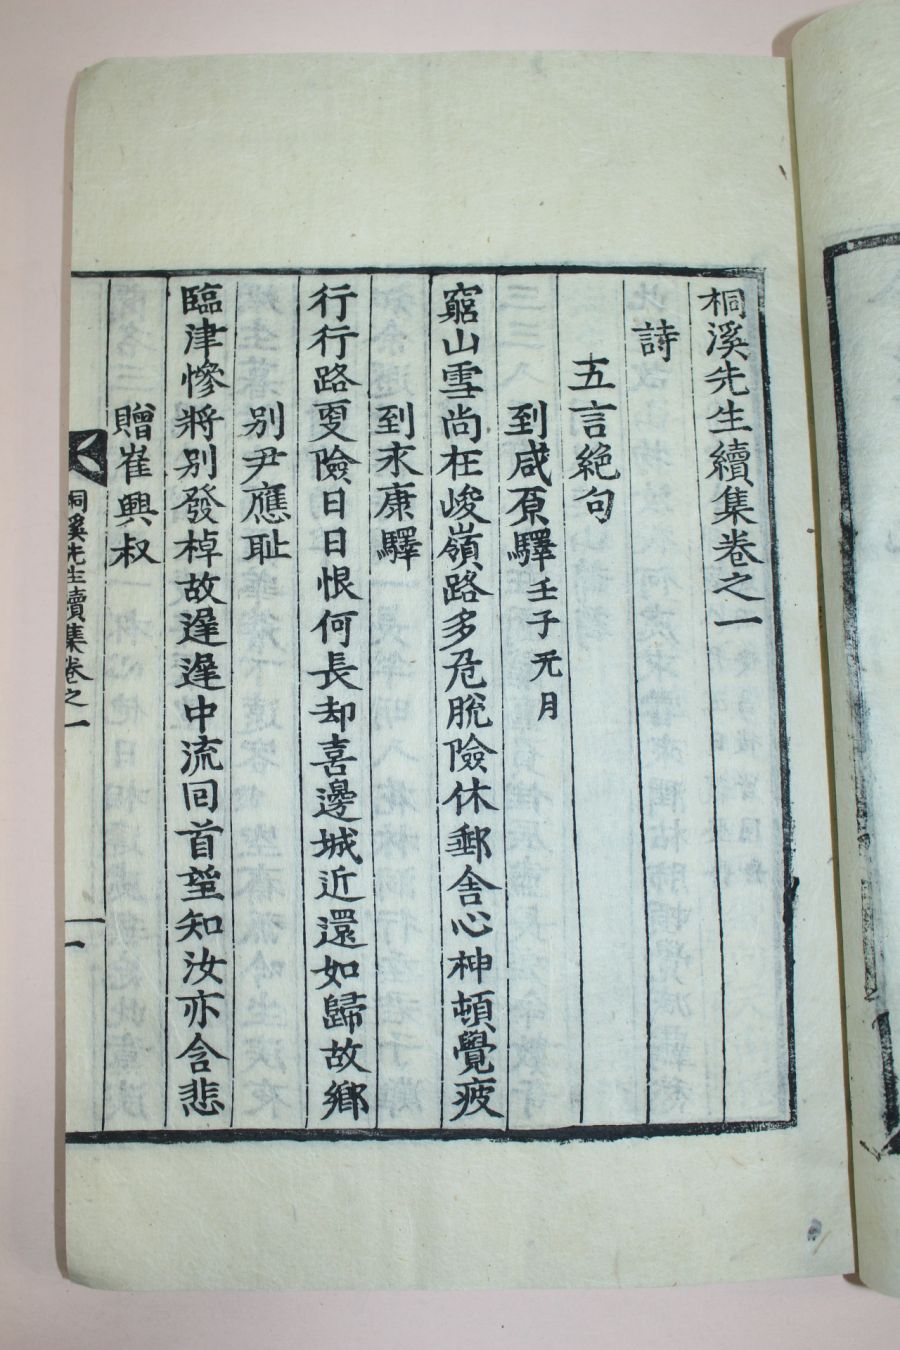 桐溪先生續集卷之一
詩
五言絶句
到咸原驛 壬子元月
窮山雪尚在峻嶺路多危脫險休郵舍心神頓覺疲
到永康驛
行行路更險日日恨何長却喜邊城近還如歸故鄉
別尹應耻
臨津慘將別發棹故遲遲中流回首望知汝亦含悲
贈崔興叔
桐溪先生續集卷之一
一